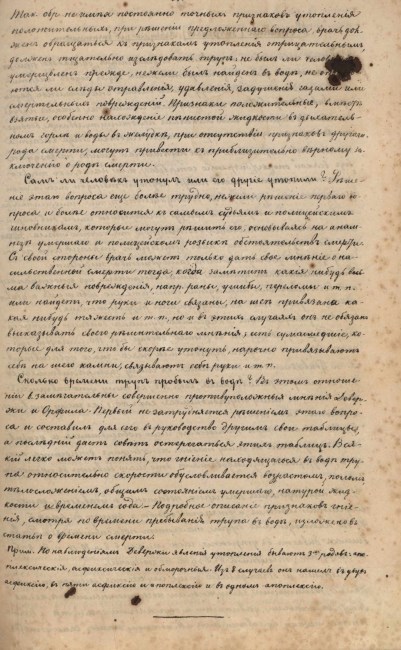 Такъ обр. не имѣя постоянно точныхъ признаковъ утопленія
положительныхъ, при рѣшеніи предложеннаго вопроса, врачъ дол-
женъ обращаться къ признакамъ утопленія отрицательнымъ
долженъ тщательно изслѣдовать трупъ, не былъ ли
умерщвленъ прежде, нежели былъ найденъ въ водѣ, не
ются ли слѣды отравленія, удавленія, задушенія газами или
смертельныхъ поврежденій. Признаки положительные, вмѣстѣ
взятые, особенно нахожденіе пѣнистой жидкости въ дыхатель-
номъ горлѣ и воды въ желудкѣ, при отсутствіи признаковъ другаго
рода смерти, могутъ привести къ приблизительно вѣрному за-
ключенію о родѣ смерти.
Самъ ли человѣкъ утонулъ или его другіе утопили? Рѣше-
ніе этаго вопроса еще болѣе трудно, нежели рѣшеніе перваго во-
проса и болѣе относится къ самимъ судьямъ и полицейскимъ
чиновникамъ, которые могутъ рѣшить его, основываясь на анам-
незѣ умершаго и полицейскомъ розыскѣ обстоятельствъ смерти.
Съ своей стороны врачъ можетъ только дать свое мнѣніе о на-
сильственной смерти тогда, когда замѣтитъ какія нибудь весь-
ма важныя поврежденія, напр. раны, ушибы, переломы и т. п.
или найдетъ, что руки и ноги связаны, на шеѣ привязана ка-
кая нибудь тяжесть и т. п. но и въ этихъ случаяхъ онъ не обязанъ
высказывать своего рѣшительнаго мнѣнія; есть сумасшедшіе, ко-
торые для того, что бы скорѣе утонуть, нарочно привязываютъ
себѣ на шею камни, связываютъ себѣ руки и т. п.
Сколько времени трупъ пробылъ въ водѣ? Въ этомъ отноше-
ніи замѣчательны совершенно противуположныя мнѣнія Девер-
жи и Орфила. Первый не затрудняется рѣшеніемъ этаго вопро-
са и составилъ для его въ руководство другимъ свои таблицы,
а послѣдній даетъ совѣтъ остерегаться этихъ таблицъ. Вся-
кій легко можетъ понять, что гніеніе находящагося въ водѣ тру-
па относительно скорости обусловливается возрастомъ, поломъ
тѣлосложеніемъ, общимъ состояніемъ умершаго, натурой жид-
кости и временемъ года. – Подробное описаніе признаковъ гніе-
нія, смотря по времени пребыванія трупа въ водѣ, изложено въ
статьѣ о времени смерти.
Прим. По наблюденіямъ Девержи явленія утопленія бываютъ 3хъ родовъ: апо-
плексическія, асфиксическія и обморочныя. Изъ 8 случаевъ онъ нашелъ въ двухъ
асфиксію, въ пяти асфиксію и апоплексію и въ одномъ апоплексію.